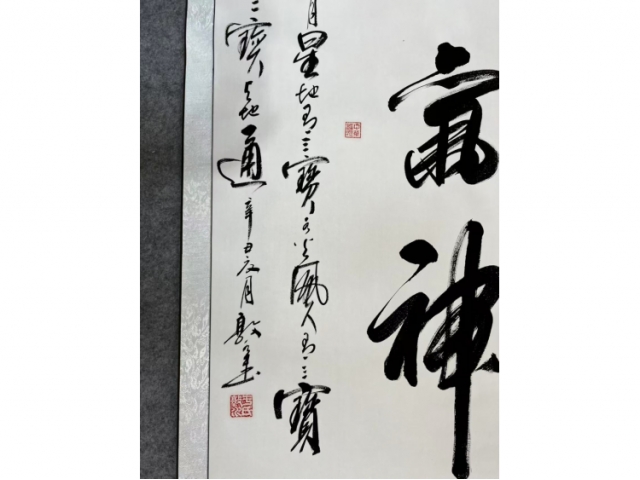 氣神
月星地有三寶水火風人有三寶
三寶地通
辛丑夏月